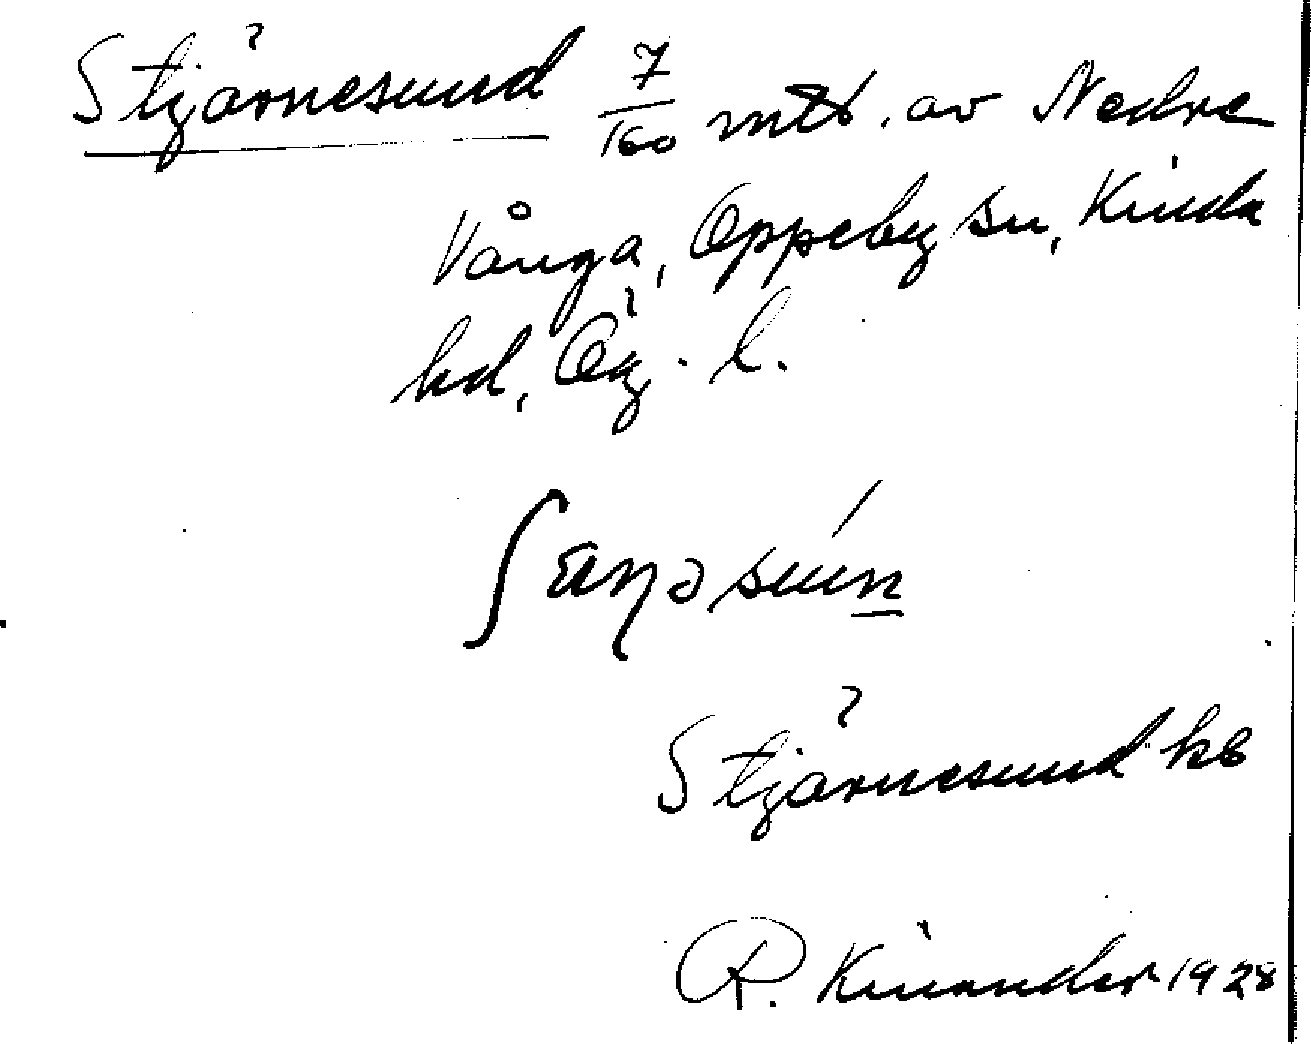 Stjärnesund 7/160 mtl. av Nedre
Vånga, Oppeby sn, Kinda
hd, Ög. l.
Stjärnesund kb
R. Kinander 1928